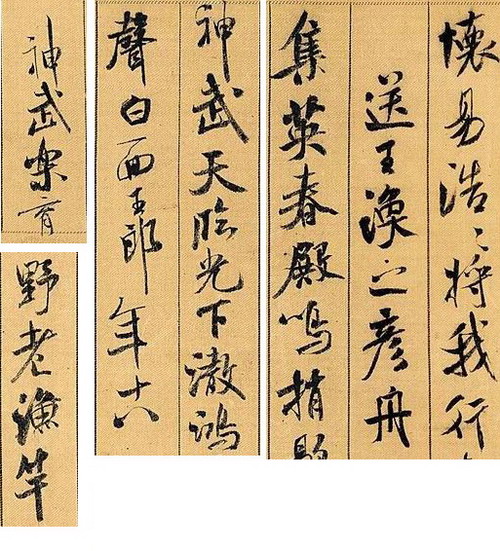 懷易浩〻將我行
送王渙之彥舟
集英春殿鳴捎
神武天臨光下澈鴻
聲白面玉郎年十八
神武樂育
野老漁竿